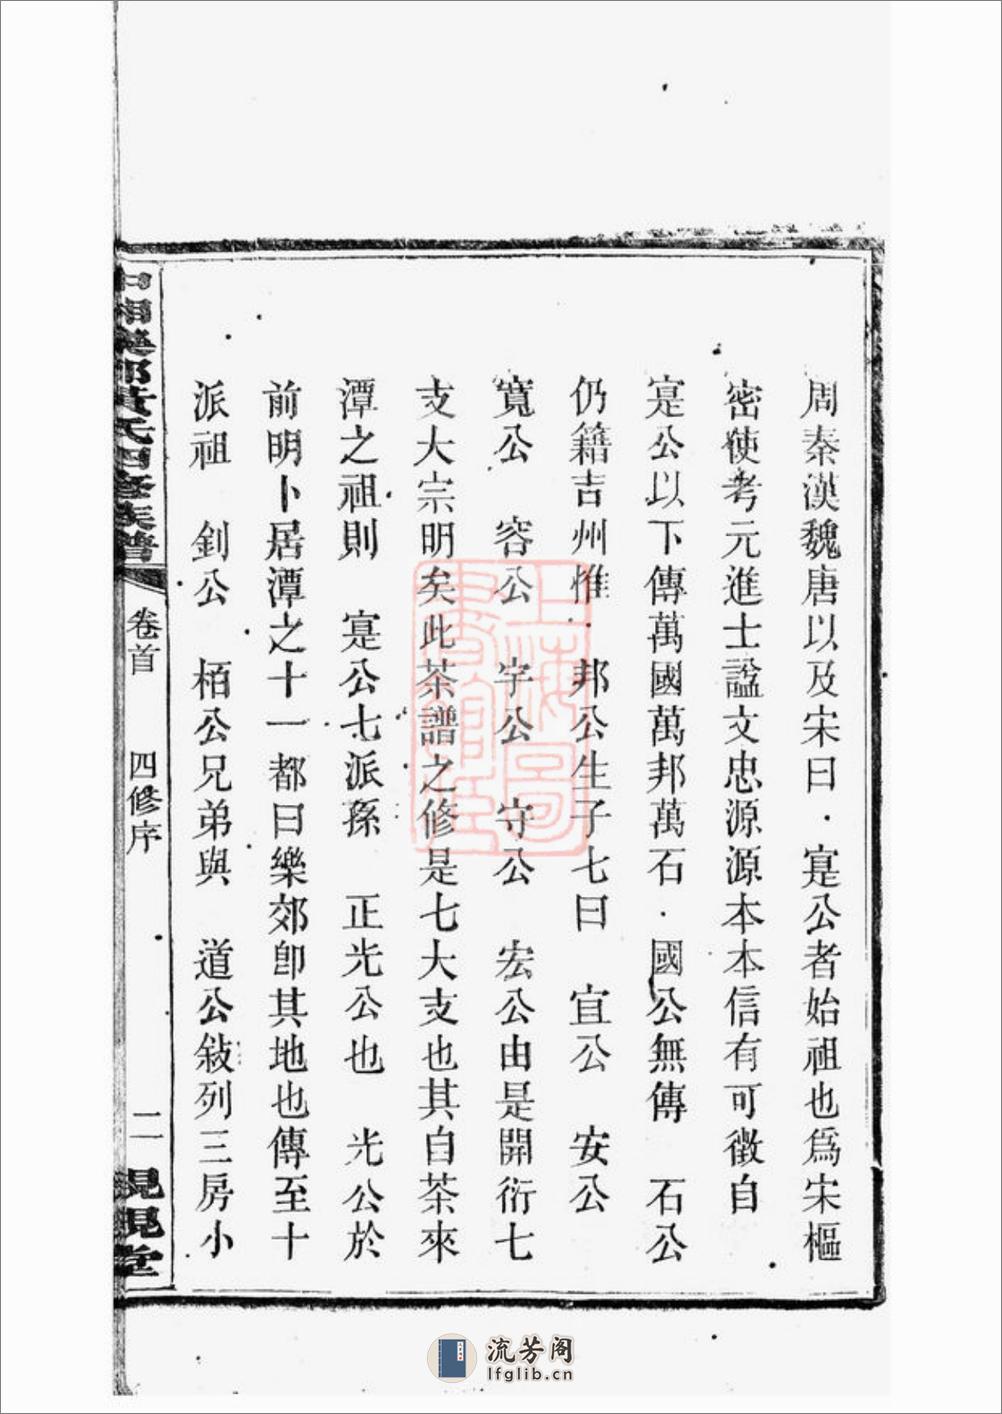 周秦漢魏唐以及宋曰 寔公者始祖也爲宋樞
密使考元進士諡文忠源源本本信有可徵自
寔公以下傳萬國萬邦萬石 國公無傳 石公
仍籍吉州惟 邦公生子七曰 宜公 安公
寬公 容公 宇公 守公 宏公由是開衍七
支大宗明矣此茶譜之修是七大支也其自茶來
潭之祖則 寔公七派孫 正光公也 光公於
前明卜居潭之十一都曰樂郊卽其地也傳至十
派祖 釗公 栢公兄弟與 道公敍列三房小
黃氏四修族譜
卷首 四修序 二
上海圖
書館藏
流芳阁
lfglib.cn